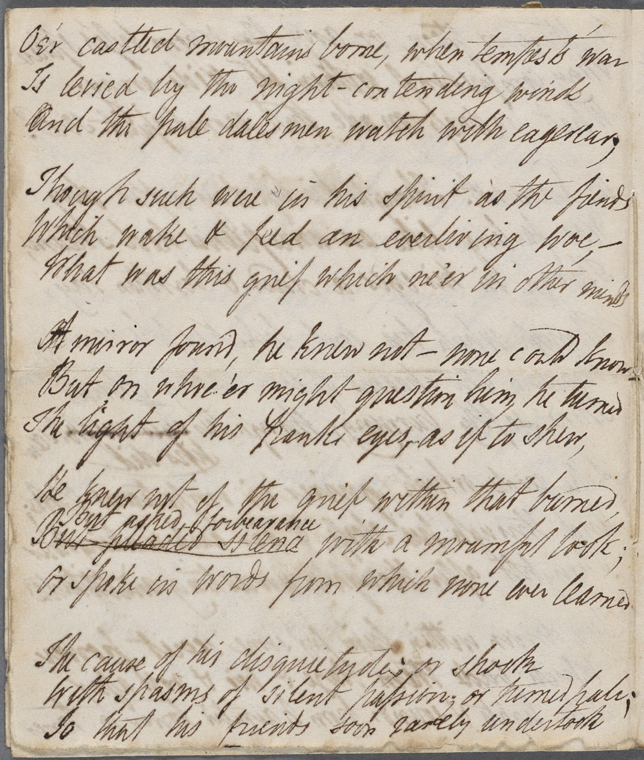 Oe'r castled mountains borne, when tempest's war
Is levied by the night-contending winds
And the pale dalesmen watch with eager ear;
Though such were in his spirit as the fiends
Which wake & feed an everliving woe,—
What was this grief which ne'er in other minds
A mirror found, he knew not — none could know
But on whoe'er might question him he turned
The light of his frank eyes, as if to shew,
He knew not of the grief within that burned,
But asked forbearance
But pleaded silence with a mournful look;
or spake in words from which none ever learned
The cause of his disquietude; or shook
With spasms of silent passion; or turned pale;
So that his friends soon rarely undertook